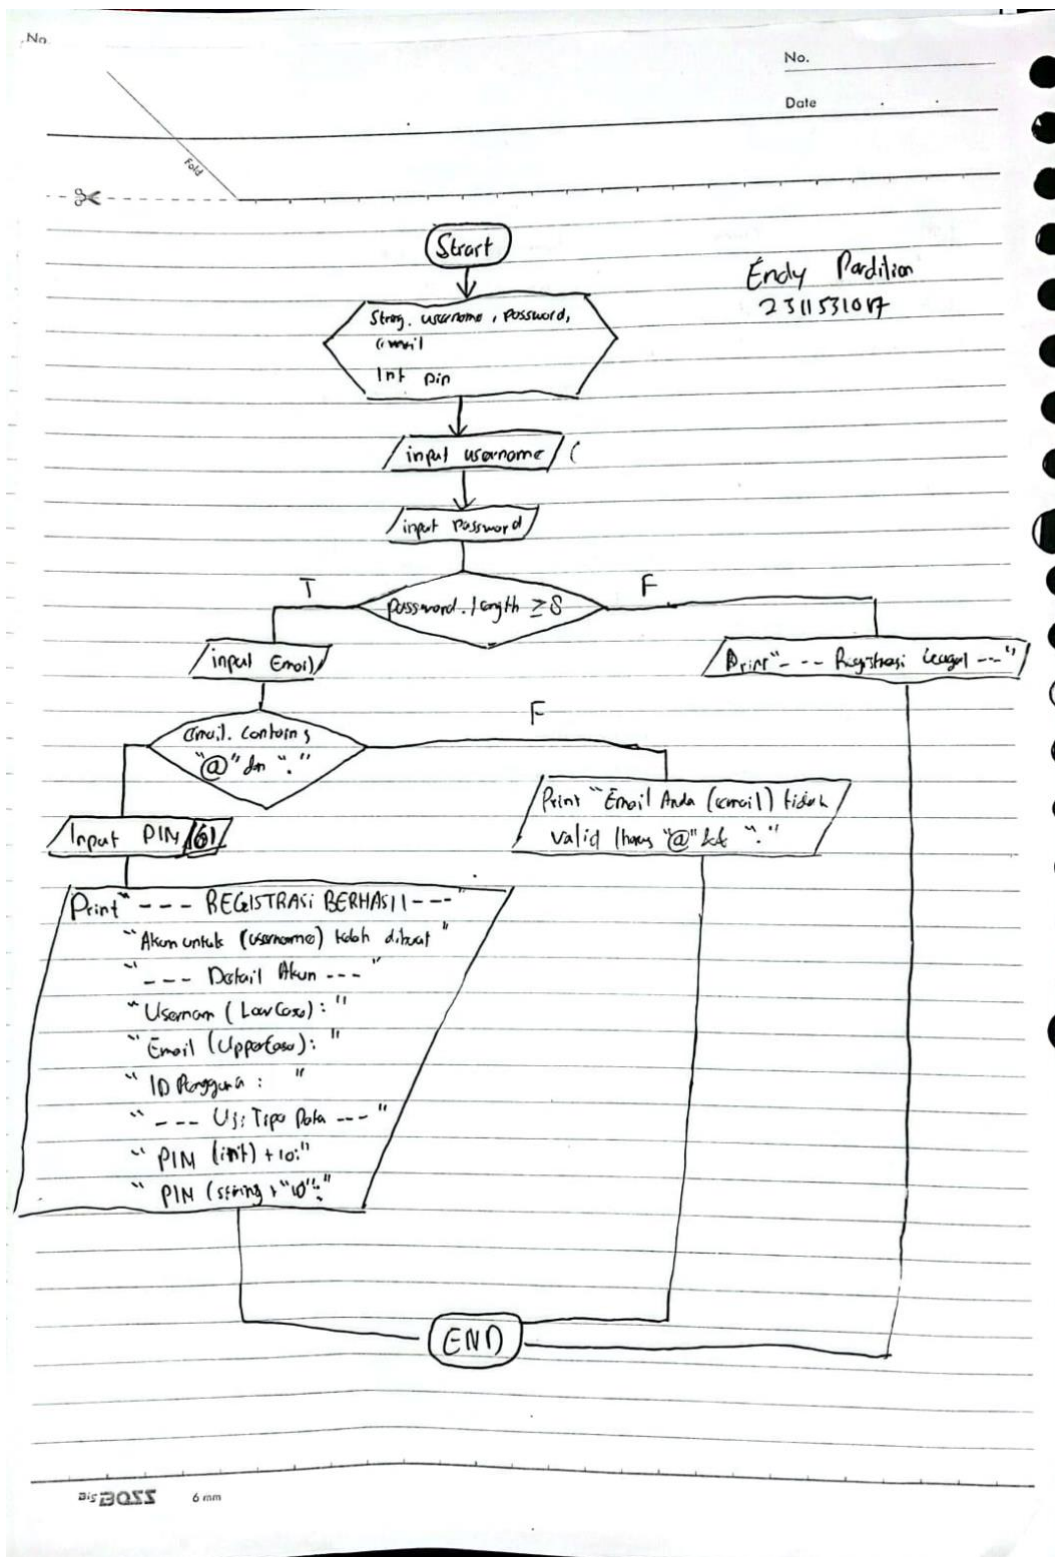 No.
No.
Date
Fold
Start
Endy Pardilian
2311531017
String. username, password,
email
Int pin
input username (
input password
T
password.length ≥ 8
F
input Email
Print "--- Registrasi Gagal ---"
email. contains
"@" dan "."
F
Input PIN (6)
Print "Email Anda (email) tidak
valid (harus "@" && "."
Print "--- REGISTRASi BERHASIl ---"
"Akun untuk (username) telah dibuat"
"--- Detail Akun ---"
"Usernam (LowCase): "
"Email (UpperCase): "
"ID Pengguna : "
"--- Uji Tipe Data ---"
"PIN (int) + 10:"
"PIN (string + "10":"
END
BiG BOSS 6 mm